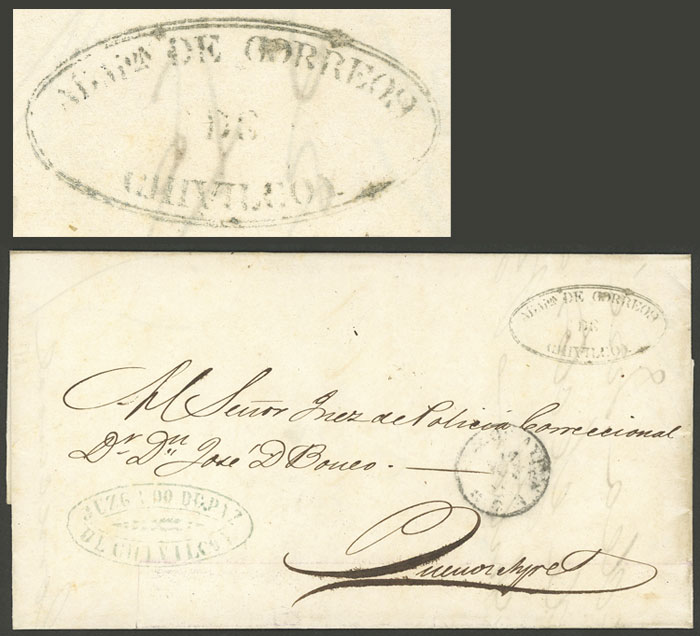 ADMON DE CORREOS
DE
CHIVILCOY
ADMON DE CORREOS
DE
CHIVILCOY
Al Señor Juez de Policia Correccional
Dr. Dn José D Boneo.
JUZGADO DE PAZ
DE CHIVILCOY
Buenos Ayres